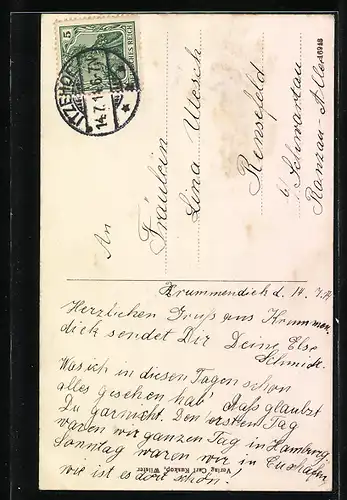 5
DEUTSCHES REICH
ITZEHOE
14.7.14. 6-7N
An
Fräulein
Lina Wesch
Rensefeld
b/ Schwartau
Ranzau-Allee
Krummendiek d. 14. 7. 14
Herzlichen Gruß aus Krummen
diek sendet Dir Deine Else
Schmidt.
Was ich in diesen Tagen schon
alles gesehen hab' das glaubst
Du garnicht. Den ersten Tag
waren wir ganzen Tag in Hamburg,
Sonntag waren wir in Cuxhafen,
wie ist es dort schön!
Verlag Carl Kuskop, Wilster